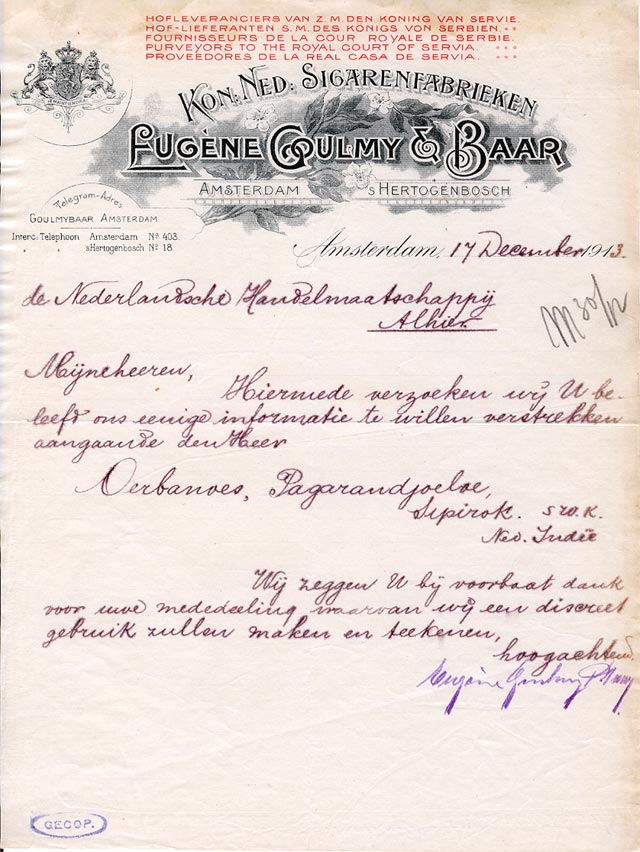 HOFLEVERANCIERS VAN Z.M. DEN KONING VAN SERVIE.
HOF-LIEFERANTEN S.M. DES KÖNIGS VON SERBIEN.
FOURNISSEURS DE LA COUR ROYALE DE SERBIE.
PURVEYORS TO THE ROYAL COURT OF SERVIA.
PROVEEDORES DE LA REAL CASA DE SERVIA.
KON: NED: SIGARENFABRIEKEN
EUGÈNE GOULMY & BAAR
AMSTERDAM 'S HERTOGENBOSCH
Telegram-Adres
GOULMYBAAR AMSTERDAM
Interc: Telephoon Amsterdam No 403.
'sHertogenbosch No 18.
Amsterdam, 17 December 1913.
de Nederlandsche Handelmaatschappij
Alhier
Mijneheeren,
Hiermede verzoeken wij U be-
leefd ons eenige informatie te willen verstrekken
aangaande den Heer
Oerbanoes, Pagarandjoeloe,
Sipirok. S.W.K.
Ned. Indië
Wij zeggen U bij voorbaat dank
voor uwe mededeeling waarvan wij een discreet
gebruik zullen maken en teekenen,
hoogachtend.
Eugène Goulmy & Baar
GECOP.